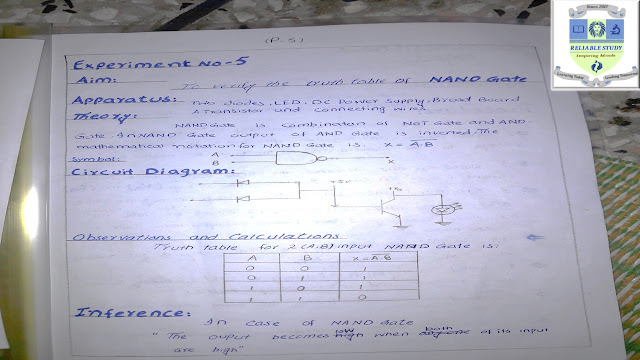 (P.5)
Experiment No-5
Aim: To verify the truth table of NAND Gate
Apparatus: Two diodes, LED, DC Power Supply, Broad Board
A Transistor and connecting wires
Theory: NAND Gate is combination of NOT Gate and AND
Gate. In NAND Gate output of AND Gate is inverted. The
mathematical notation for NAND Gate is: X = A.B
Symbol: A
B
X
Circuit Diagram:
+5V
Observations and Calculations
Truth table for 2(A.B) input NAND Gate is:
A B X=A.B
0 0 1
0 1 1
1 0 1
1 1 0
Inference:
In case of NAND Gate
low both
"The ouput becomes high when of its input
are high"
Since 2007
RELIABLE STUDY
Inspiring Minds